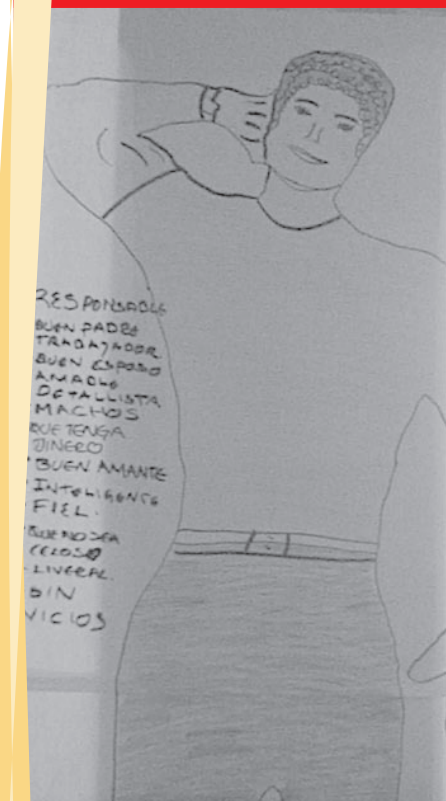 RESPONSABLE
BUEN PADRE
TRABAJADOR
BUEN ESPOSO
AMABLE
DETALLISTA
MACHOS
QUE TENGA
DINERO
BUEN AMANTE
INTELIGENTE
FIEL.
QUE NO SEA
CELOSO
LIVERAL.
SIN
VICIOS